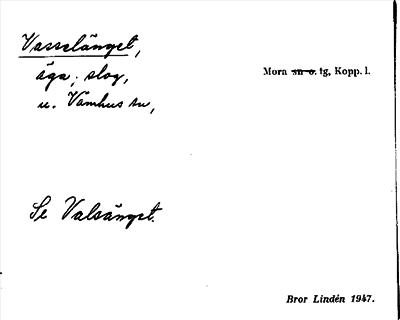 Vasselänget,
äga; slog,
u. Våmhus sn,
Mora sn o. tg, Kopp. l.
Se Valsänget.
Bror Lindén 1947.